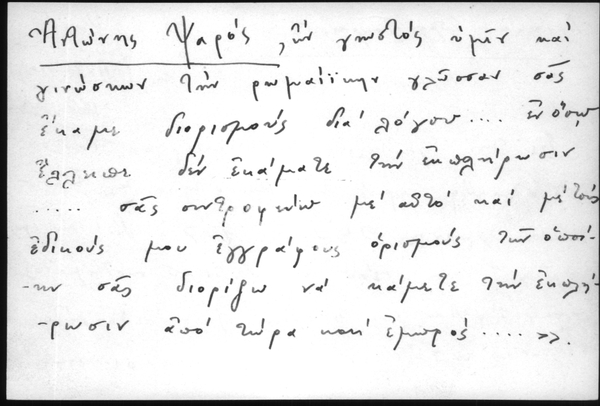 Ἀντώνης Ψαρός, ὢν γνωστός ὑμῖν καί
γινώσκων τήν ρωμαίϊκην γλῶσσαν σᾶς
ἔκαμε διορισμούς διά λόγου.... ἐν ὅσῳ
ἔλλειπε δέν ἐκάματε τήν ἐκπλήρωσιν
..... σᾶς συντροφεύω μέ αὐτό καί μέ τούς
ἐδικούς μου ἐγγράφους ὁρισμούς τῶν ὁποί-
-ων σᾶς διορίζω νά κάμετε τήν ἐκπλή-
-ρωσιν ἀπό τώρα καί ἐμπρός....».